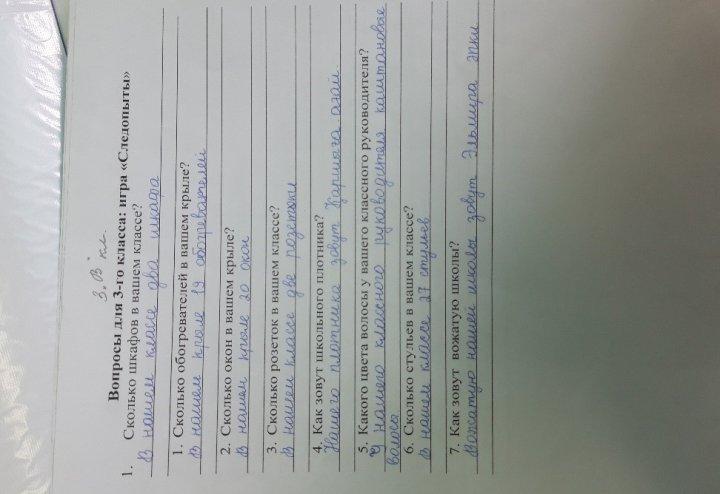 3 "В" кл.
Вопросы для 3-го класса: игра «Следопыты»
1. Сколько шкафов в вашем классе?
В нашем классе два шкафа
1. Сколько обогревателей в вашем крыле?
В нашем крыле 19 обогревателей
2. Сколько окон в вашем крыле?
В нашем крыле 20 окон
3. Сколько розеток в вашем классе?
В нашем классе две розетки
4. Как зовут школьного плотника?
Нашего плотника зовут агай.
5. Какого цвета волосы у вашего классного руководителя?
У нашего классного руководителя каштановые
волосы
6. Сколько стульев в вашем классе?
В нашем классе 27 стульев
7. Как зовут вожатую школы?
Вожатую нашей школы зовут Эльмира эпки